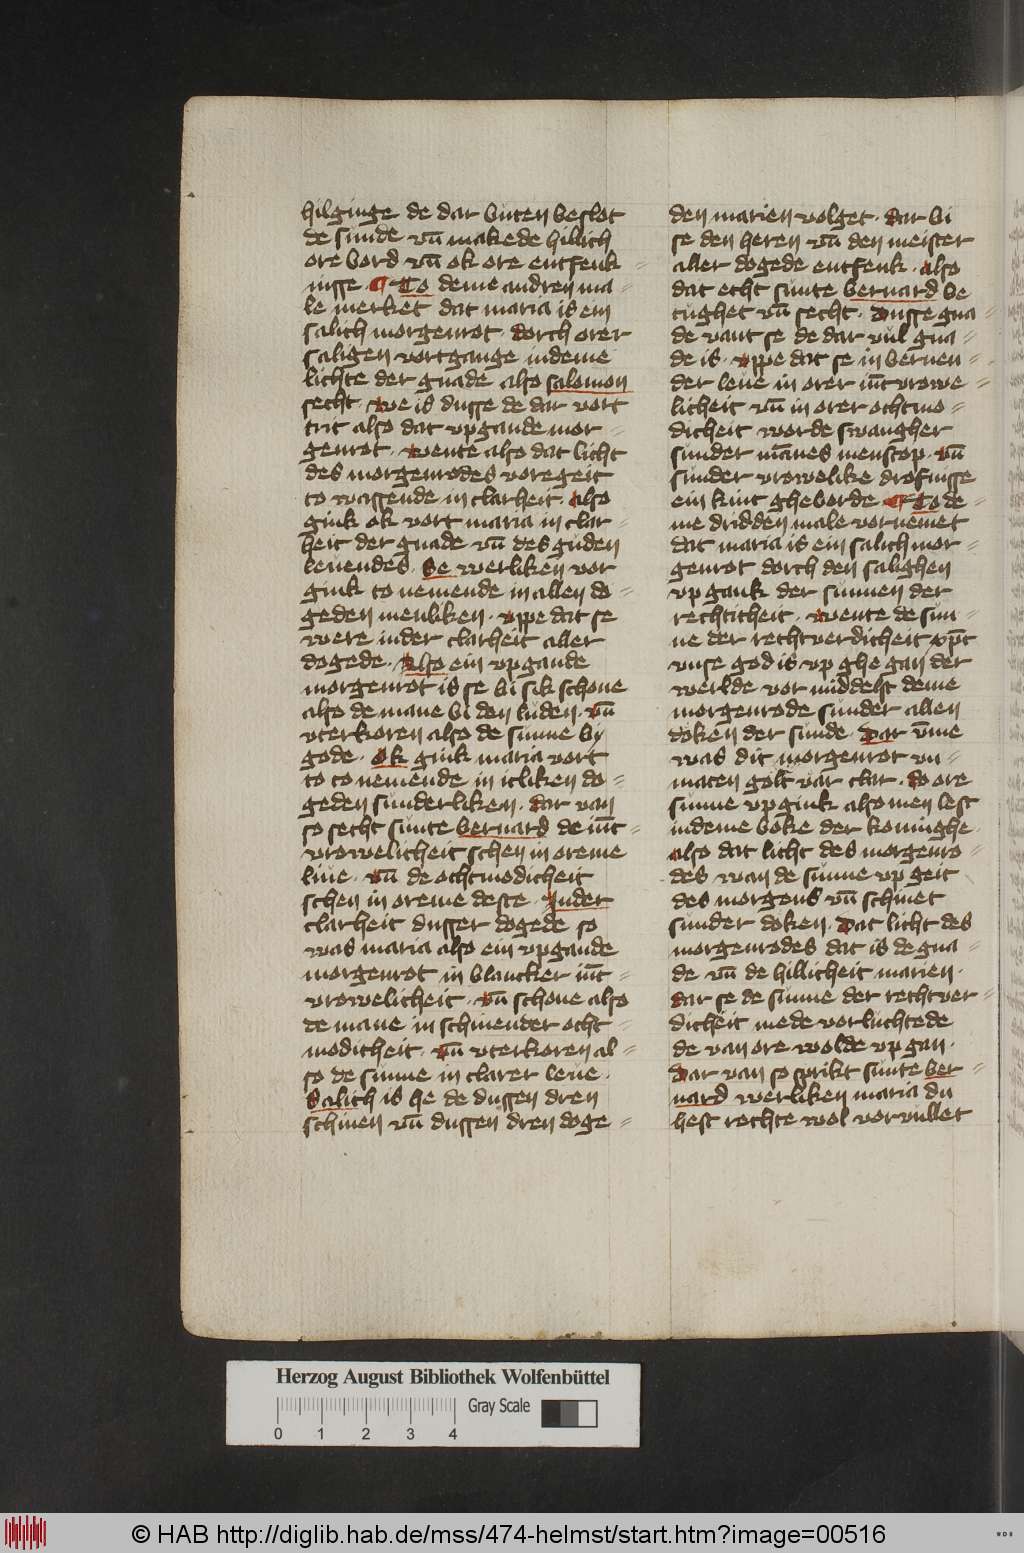 hilginge de dar buten beslot
de sunde vn̄ makede hillich
ore bord vn̄ ok ore entfenk
nisse. ¶ To deme andren ma=
le merket dat maria is ein
salich morgenrot. dorch orer
saligen vortgange indeme
lichte der gnade also salomon
secht. we is dusse de dar vort
trit also dat vpgande mor=
genrot. wente also dat licht
des morgenrodes voregeit
to wassende in clarheit. also
gink ok vort maria in clar=
heit der gnade vn̄ des guden
leuendes. Se werliken vor
gink to nemende in allen do=
geden menliken. vppe dat se
were inder clarheit aller
dogede. Also ein vpgande
morgenrot is se bi sik schone
also de mane bi den luden. vn̄
vterkoren also de sunne by
gode. Ok gink maria vort
to to nemende in itliken do=
geden sunderliken. dar van
so secht sunte bernard de iūc=
vrowelicheit schen in oreme
liue. vn̄ de othmodicheit
schen in oreme deste. Inder
clarheit dusser dogede so
was maria also ein vpgande
morgenrot in blancker iūc=
vrowelicheit. vn̄ schone also
de mane in schinender ocht=
modicheit. vn̄ vterkoren al=
so de sunne in clarer leue.
Salich is he de dussen dren
schinen vn̄ dussen dren doge=
den marien volget. dar bi
se den heren vn̄ den meister
aller dogede entfenk. also
dat echt sunte bernard be
tughet vn̄ secht. Dusse gna=
de vant se de dar vul gna=
de is. vppe dat se in bernen=
der leue in orer iūcvrowe=
licheit vn̄ in orer ochtmo=
dicheit worde swangher
sunder mānes menscop. vn̄
sunder vrowelike drofnisse
ein kint gheborde. ¶ To de=
me dridden male vornemet
dat maria is ein salich mor=
genrot dorch den salighen
vpgank der sunnen der
rechticheit. wente de sun=
ne der rechtverdicheit xp̄c
vnse god is vp ghe gan der
werlde vor middelst deme
morgenrode sunder allen
doken der sunde. Dar v̄me
was dit morgenrot vn=
maten golt var clar. do ore
sunne vpgink also men lest
indeme boke der koninghe.
also dat licht des morgenro=
des wan de sunne vp geit
des morgens vn̄ schinet
sunder doken. Dat licht des
morgenrodes dat is de gna=
de vn̄ de hillicheit marien.
dar se de sunne der rechtver=
dicheit mede vorluchtede
de van ore wolde vp gan.
Dar van so sprikt sunte ber=
nard werliken maria du
hest rechte wol vorvullet
Herzog August Bibliothek Wolfenbüttel
Gray Scale
0 1 2 3 4
© HAB http://diglib.hab.de/mss/474-helmst/start.htm?image=00516